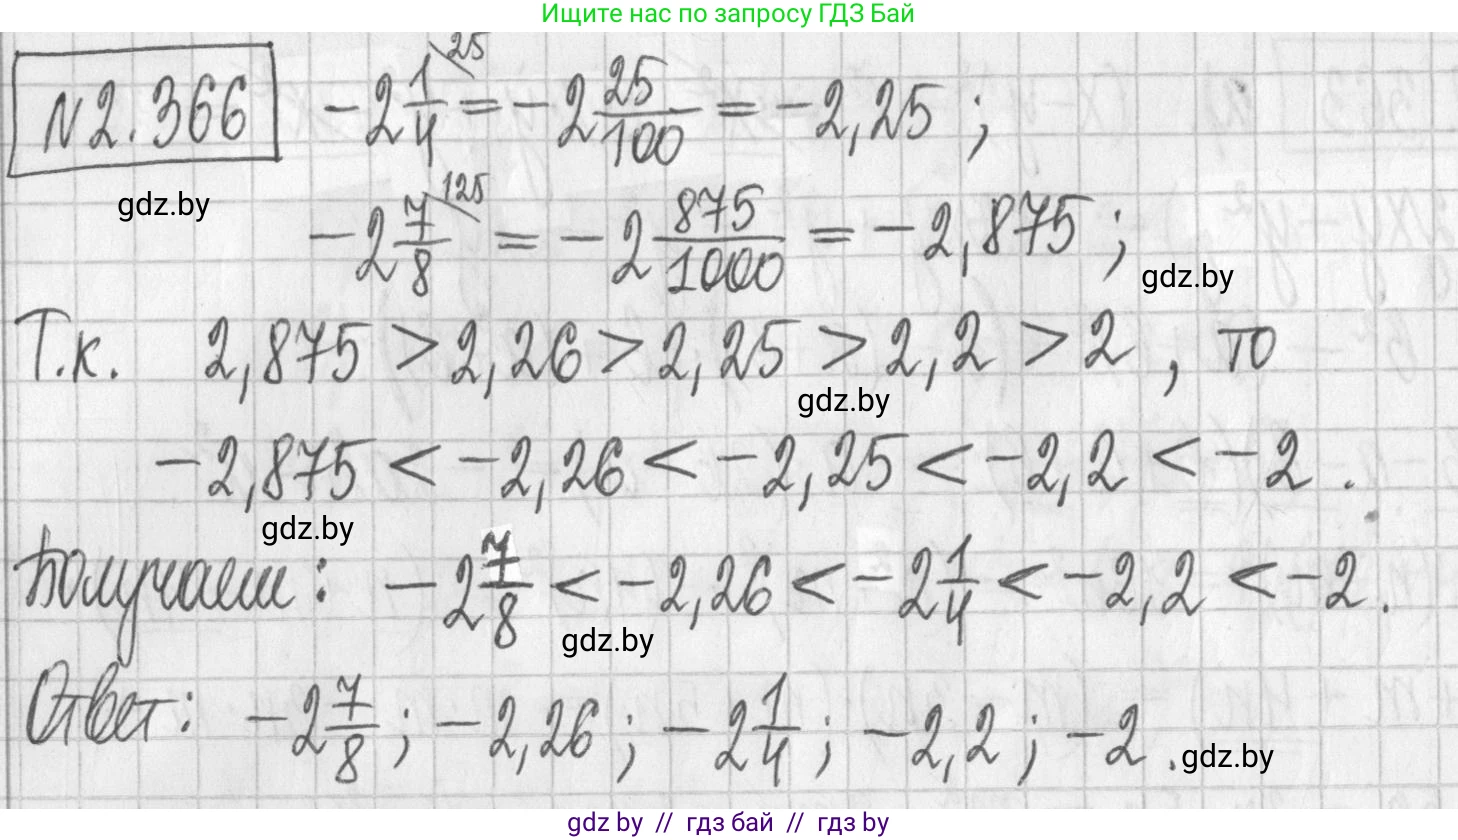 Ищите нас по запросу ГДЗ Бай
N2.366 -2 1/4 \25 = -2 25/100 = -2,25 ;
gdz.by
-2 7/8 \125 = -2 875/1000 = -2,875 ;
gdz.by
Т.к. 2,875 > 2,26 > 2,25 > 2,2 > 2 , то
gdz.by
-2,875 < -2,26 < -2,25 < -2,2 < -2 .
gdz.by
Получаем: -2 7/8 < -2,26 < -2 1/4 < -2,2 < -2 .
gdz.by
Ответ: -2 7/8 ; -2,26 ; -2 1/4 ; -2,2 ; -2 .
gdz.by
gdz by // гдз бай // гдз by